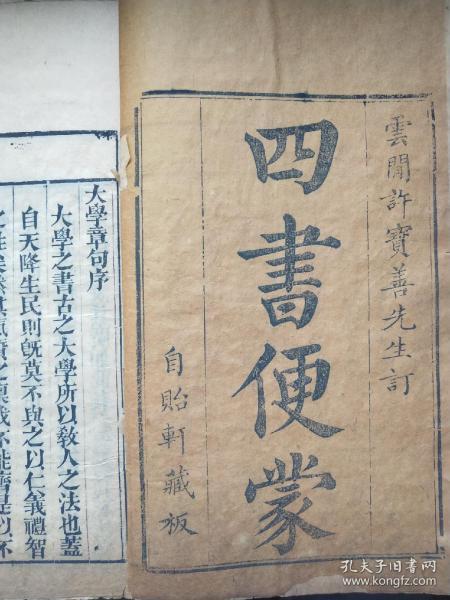 雲間許寶善先生訂
四書便蒙
自貽軒藏板
大學章句序
大學之書古之大學所以敎人之法也蓋
自天降生民則旣莫不與之以仁義禮智
之性矣然其氣質之稟或不能齊是以不
孔夫子旧书网
www.kongfz.com